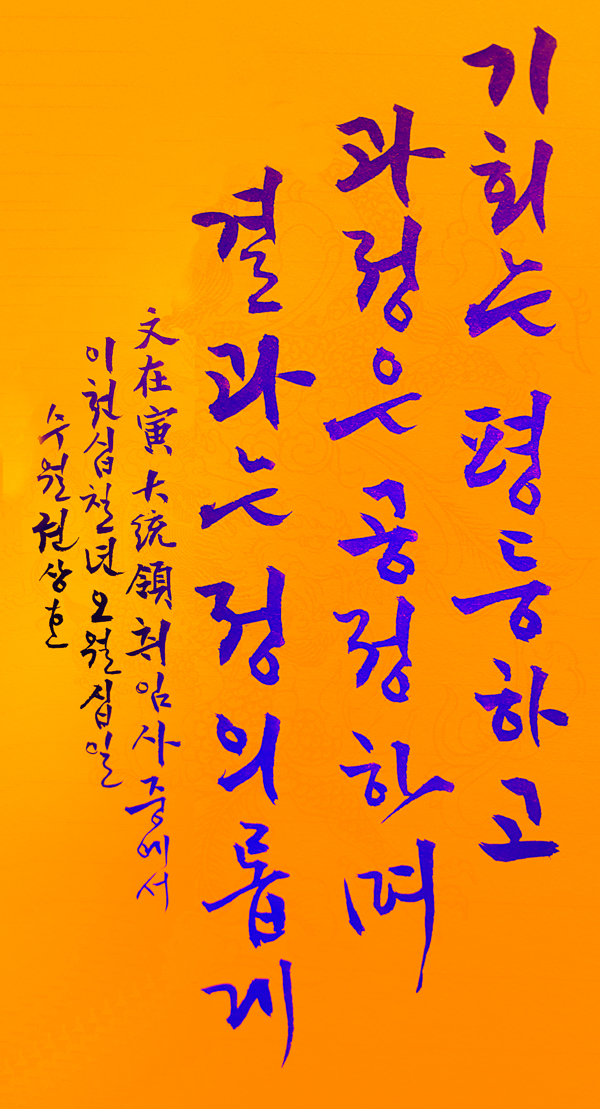 기회는 평등하고
과정은 공정하며
결과는 정의롭게
文在寅 大統領 취임사 중에서
이천십칠년 오월 십일
수월 권상호